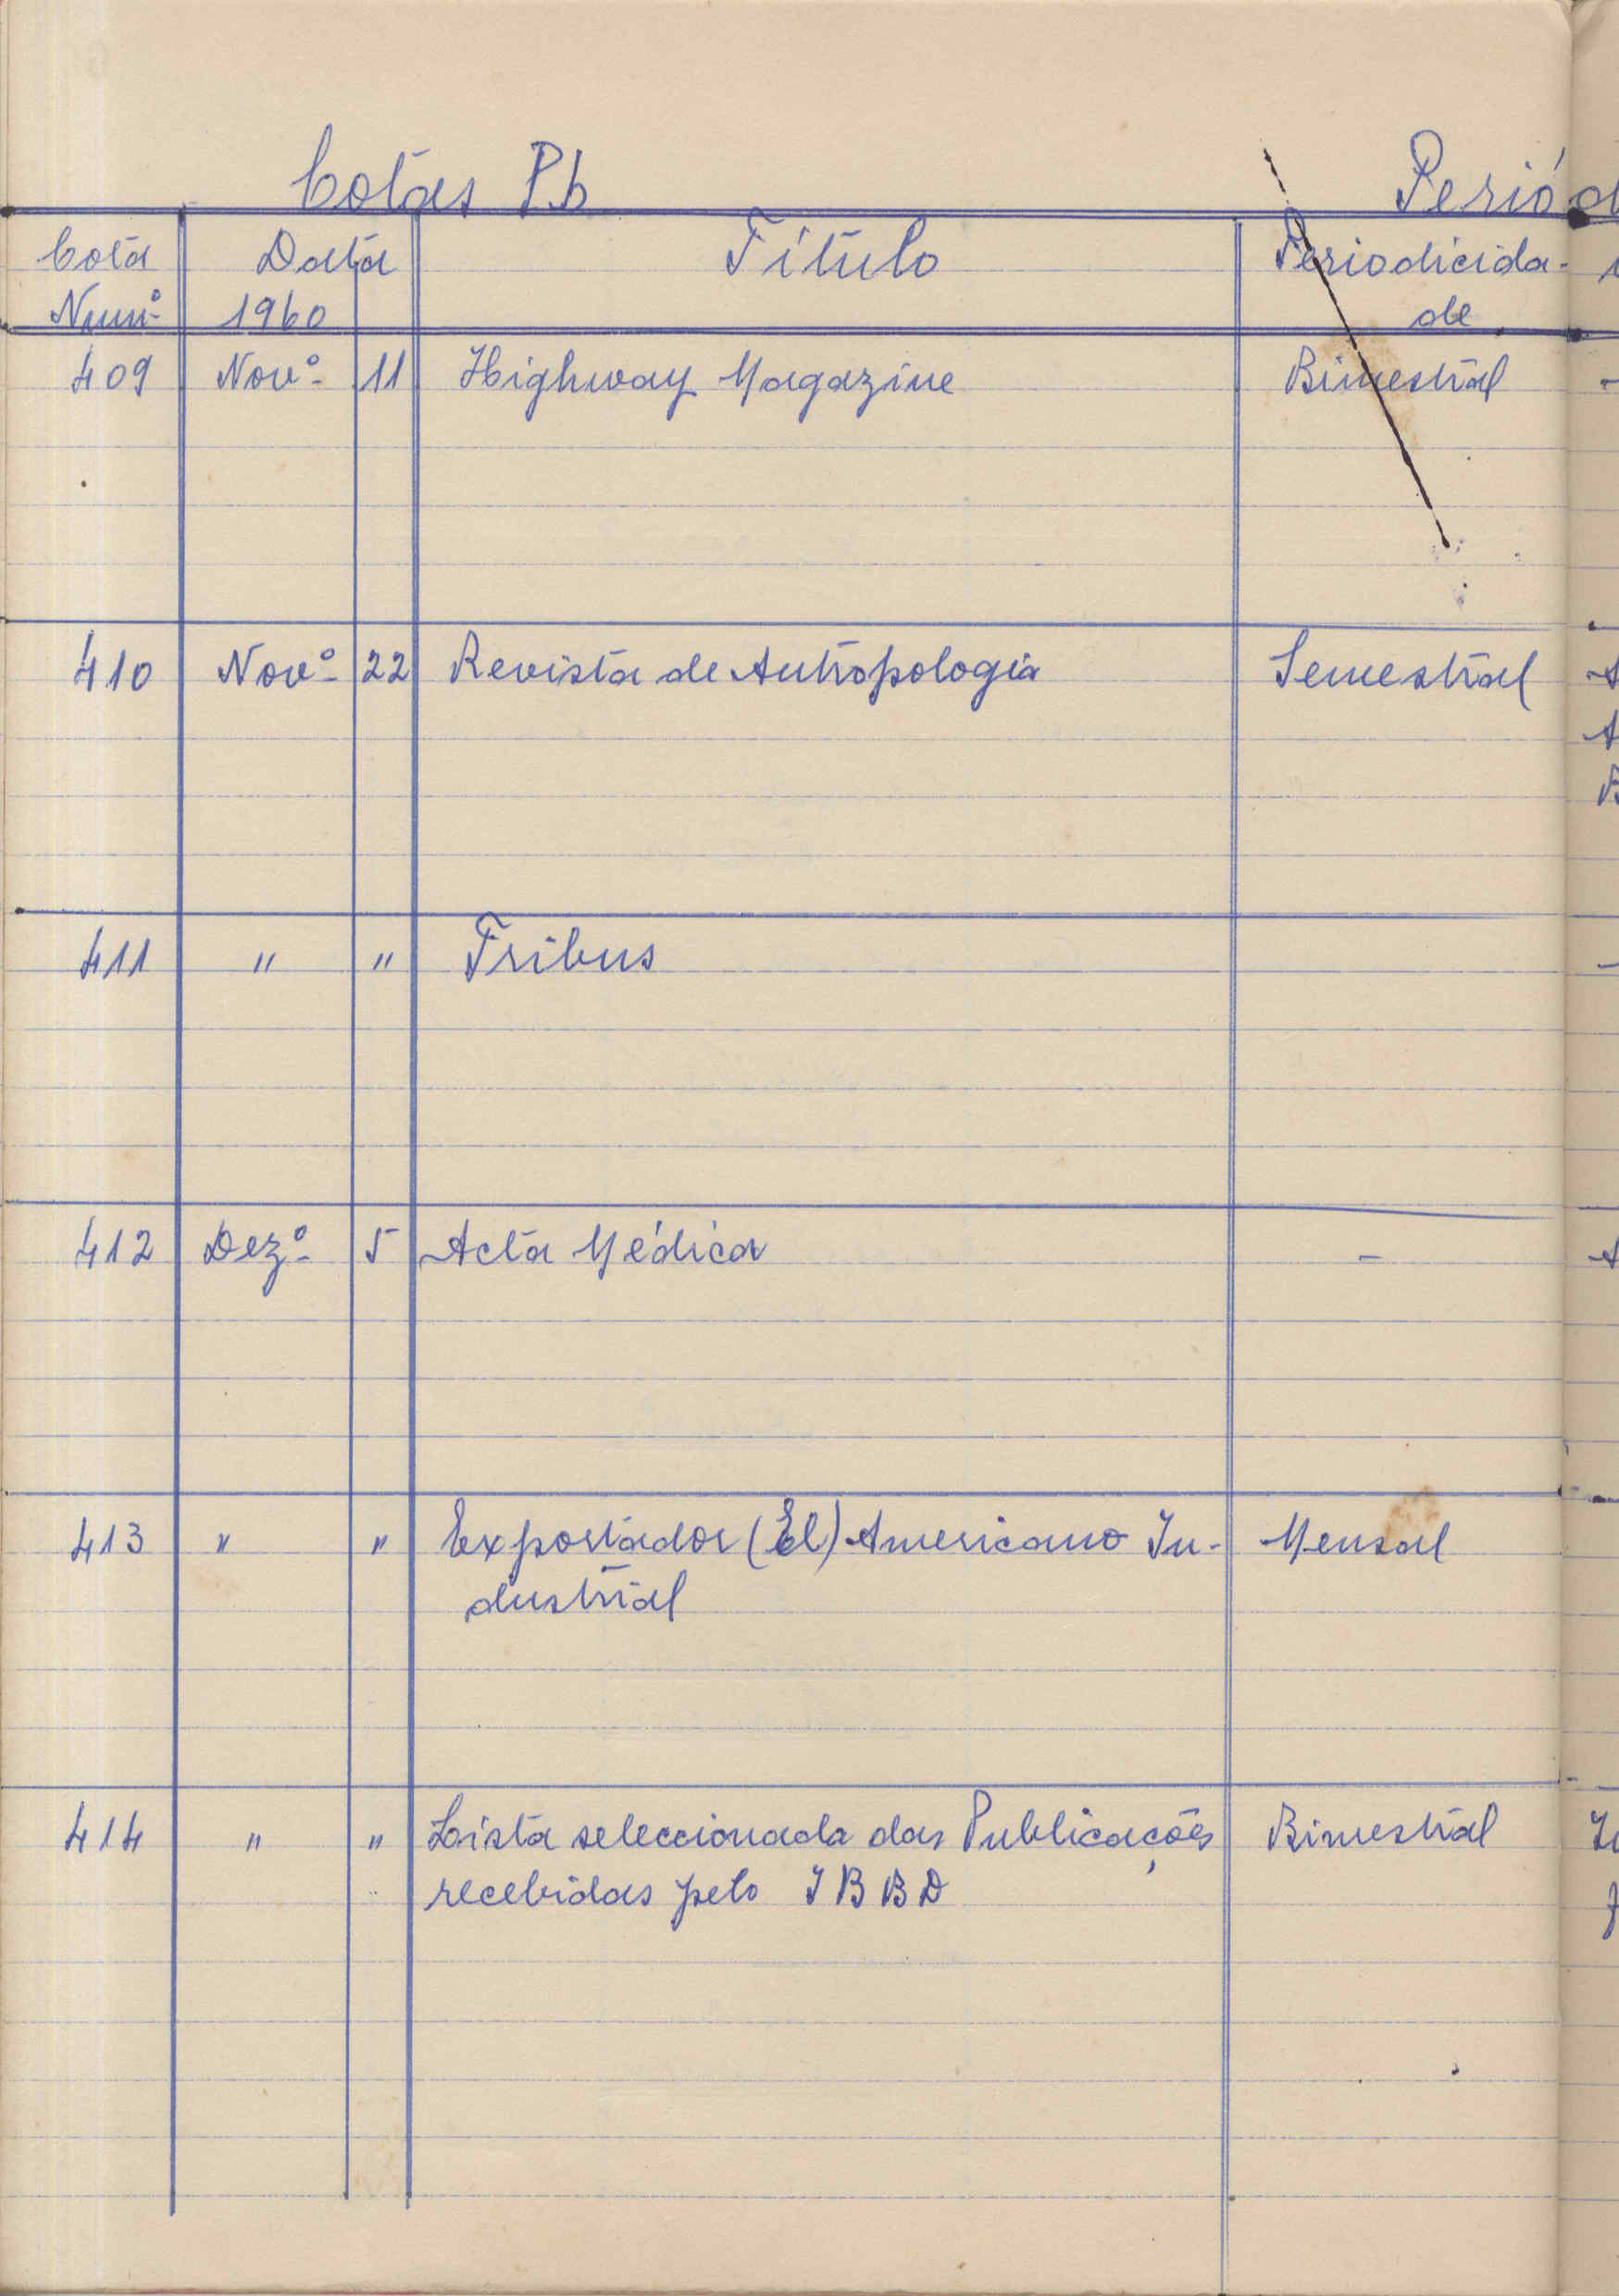 Cotas P.b Periód
Cota Data Título Periodicida-
Numº 1960 de
409 Novº 11 Highway Magazine Bimestral
410 Novº 22 Revista de Antropologia Semestral
411 " " Tribus
412 Dezº 5 Acta Médica -
413 " " Exportador (El) Americano In- Mensal
dustrial
414 " " Lista seleccionada das Publicações Bimestral
recebidas pelo I B B D